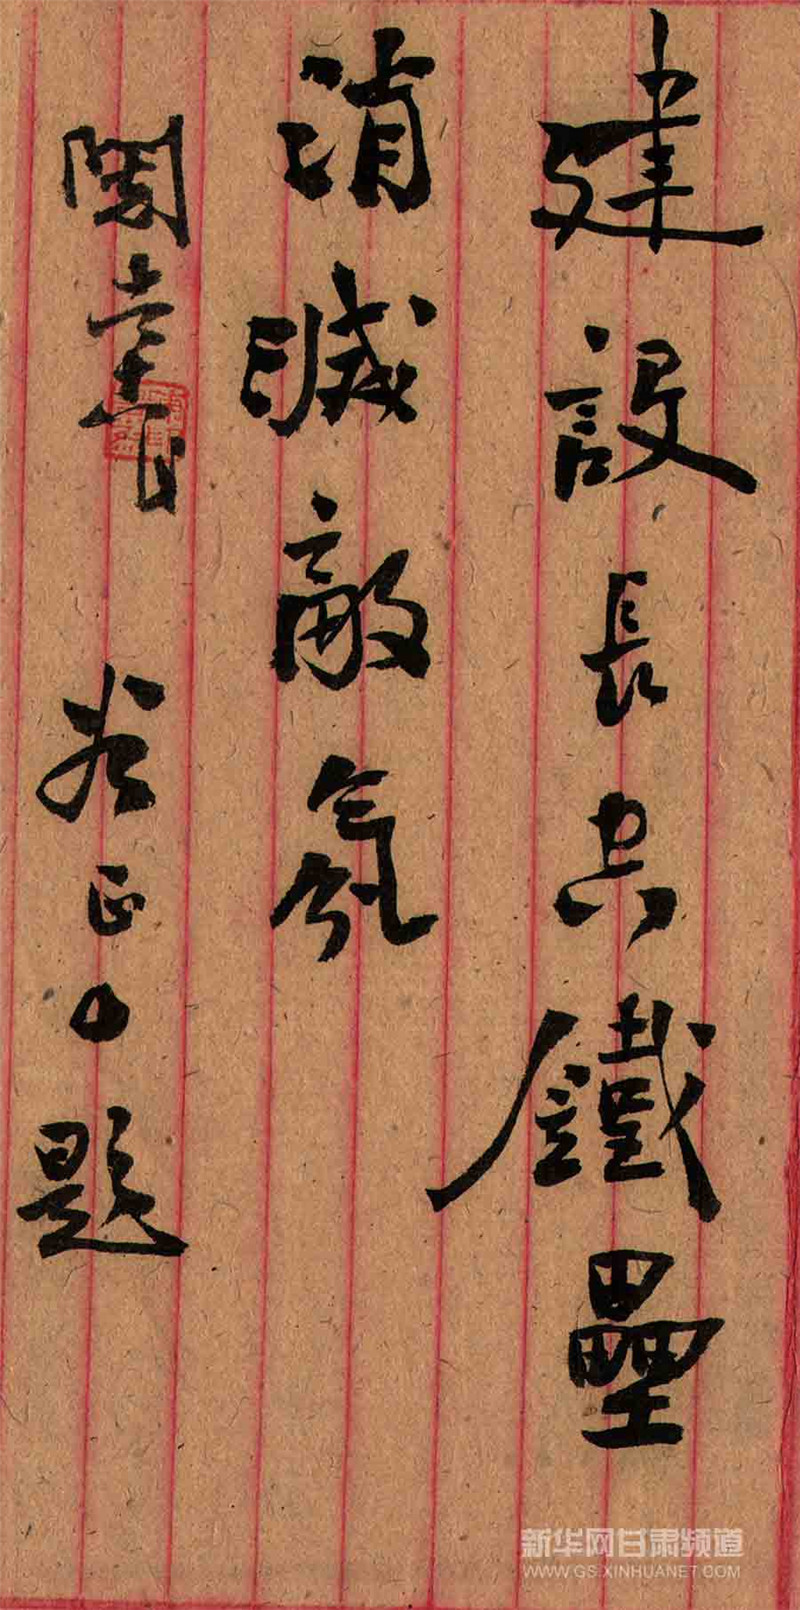 建設長空鐵壘
消滅敵氛
正 題
新华网甘肃频道
WWW.GS.XINHUANET.COM